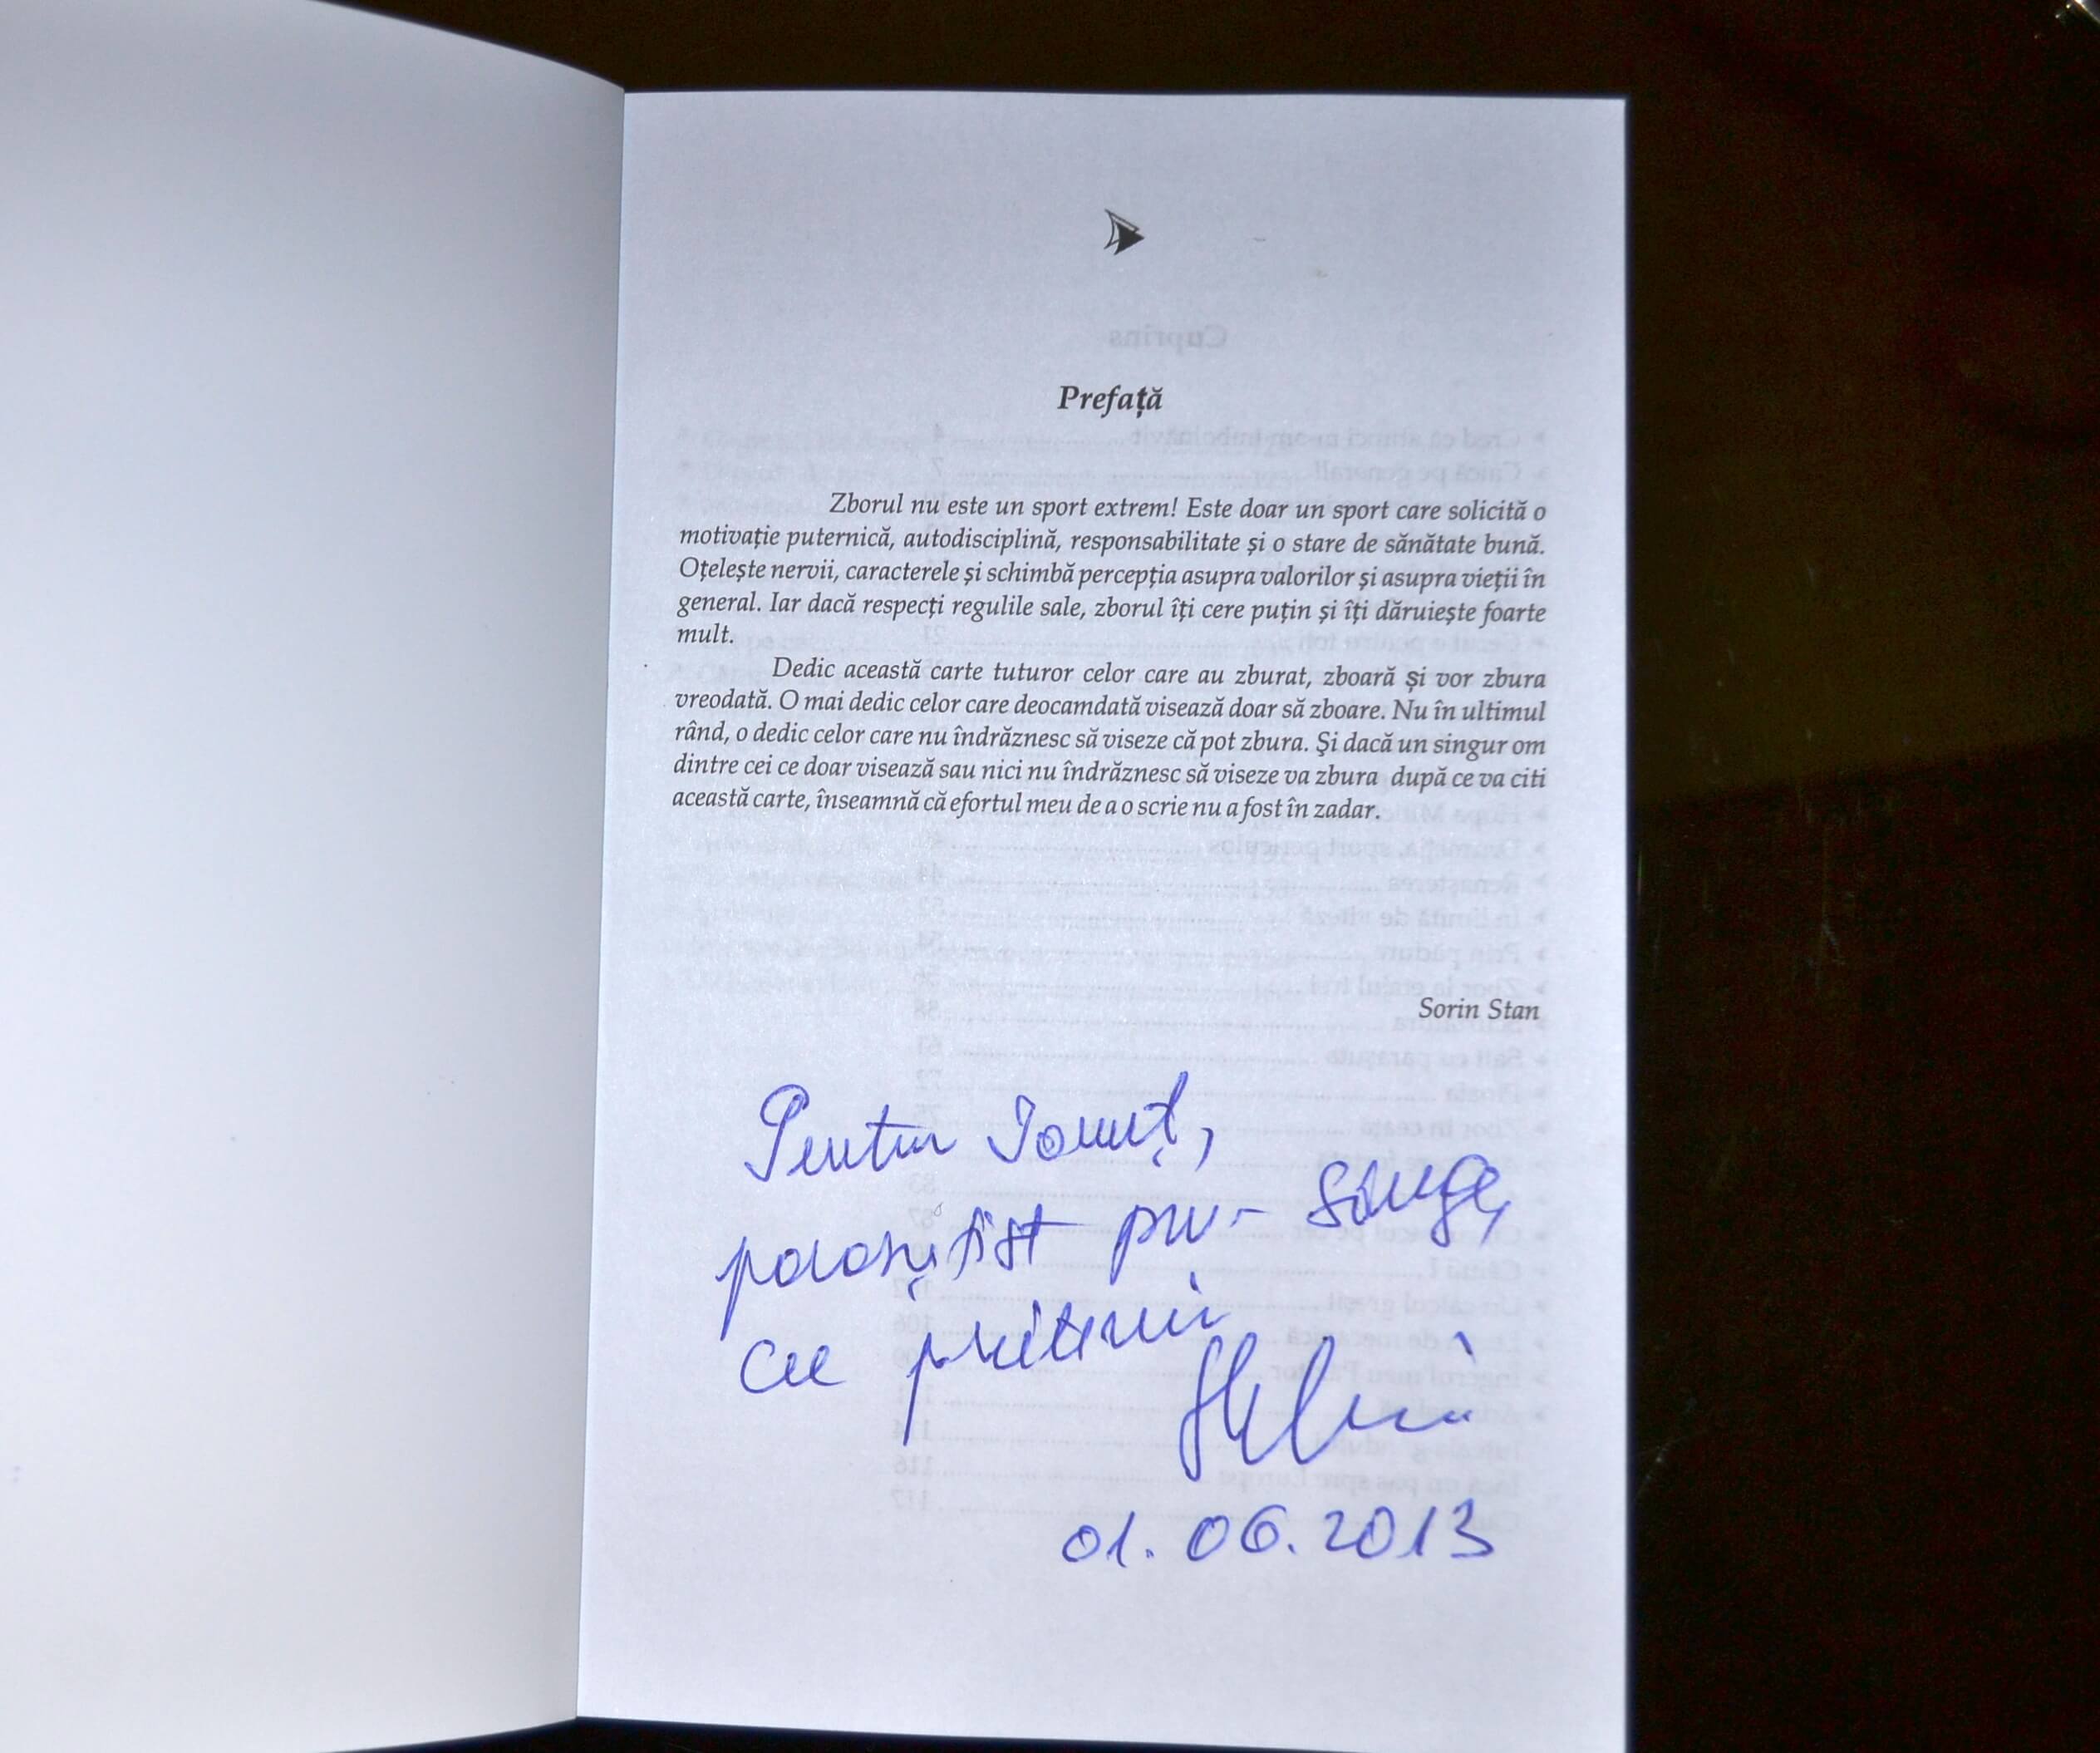 Prefaţă
Zborul nu este un sport extrem! Este doar un sport care solicită o
motivaţie puternică, autodisciplină, responsabilitate şi o stare de sănătate bună.
Oţeleşte nervii, caracterele şi schimbă percepţia asupra valorilor şi asupra vieţii în
general. Iar dacă respecţi regulile sale, zborul îţi cere puţin şi îţi dăruieşte foarte
mult.
Dedic această carte tuturor celor care au zburat, zboară şi vor zbura
vreodată. O mai dedic celor care deocamdată visează doar să zboare. Nu în ultimul
rând, o dedic celor care nu îndrăznesc să viseze că pot zbura. Şi dacă un singur om
dintre cei ce doar visează sau nici nu îndrăznesc să viseze va zbura după ce va citi
această carte, înseamnă că efortul meu de a o scrie nu a fost în zadar.
Sorin Stan
Pentru Ionuţ,
paraşutist prin sânge,
cu prietenie
01.06.2013